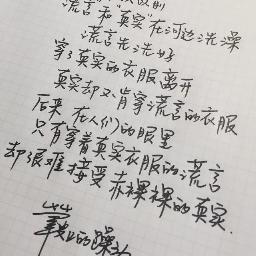 谎言和"真实"在河边洗澡
谎言先洗好
穿了真实的衣服离开
真实却不肯穿谎言的衣服
后来 在人们的眼里
只有穿着真实衣服的谎言
却很难接受赤裸裸的真实.